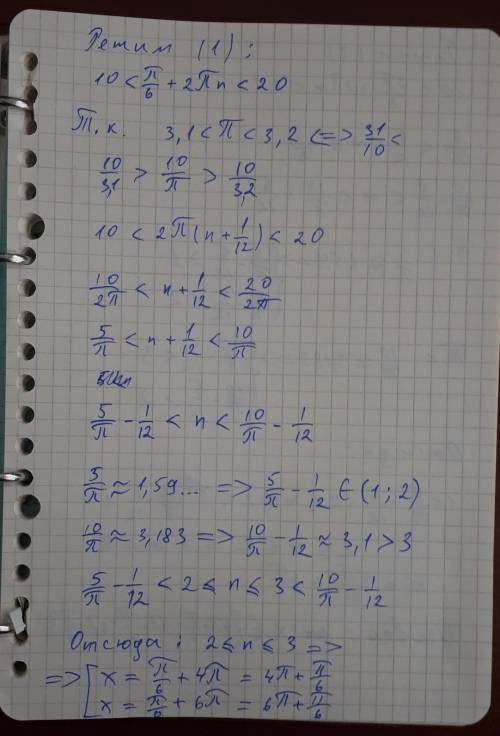 Решим (1):
10 < π/6 + 2πn < 20
Т.к. 3,1 < π < 3,2 <=> 31/10 <
10/3,1 > 10/π > 10/3,2
10 < 2π(n + 1/12) < 20
10/2π < n + 1/12 < 20/2π
5/π < n + 1/12 < 10/π
5/π - 1/12 < n < 10/π - 1/12
5/π ≈ 1,59... => 5/π - 1/12 ∈ (1; 2)
10/π ≈ 3,183 => 10/π - 1/12 ≈ 3,1 > 3
5/π - 1/12 < 2 ≤ n ≤ 3 < 10/π - 1/12
Отсюда: 2 ≤ n ≤ 3 =>
=> [ x = π/6 + 4π = 4π + π/6
x = π/6 + 6π = 6π + π/6